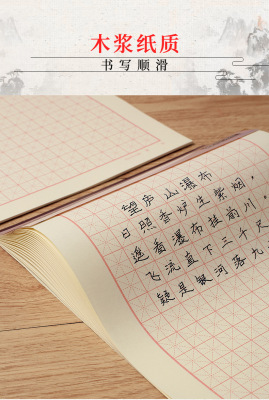 木浆纸质
书写顺滑
望庐山瀑布
日照香炉生紫烟，
遥看瀑布挂前川，
飞流直下三千尺
疑是银河落九